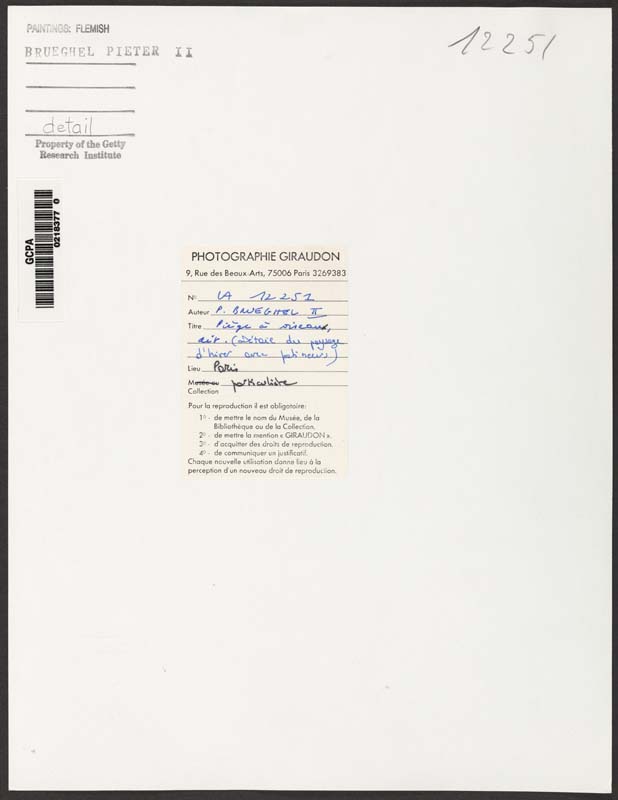 PAINTINGS: FLEMISH
BRUEGHEL PIETER II
12251
detail
Property of the Getty
Research Institute
GCPA
0218377 0
PHOTOGRAPHIE GIRAUDON
9, Rue des Beaux-Arts, 75006 Paris 3269383
No LA 12251
Auteur P. BRUEGHEL II
Titre Piège à oiseaux,
dét. (détail du paysage
d'hiver avec patineurs)
Lieu Paris
Musée ou particulière
Collection
Pour la reproduction il est obligatoire:
1o - de mettre le nom du Musée, de la
Bibliothèque ou de la Collection.
2o - de mettre la mention « GIRAUDON ».
3o - d'acquitter des droits de reproduction.
4o - de communiquer un justificatif.
Chaque nouvelle utilisation donne lieu à la
perception d'un nouveau droit de reproduction.